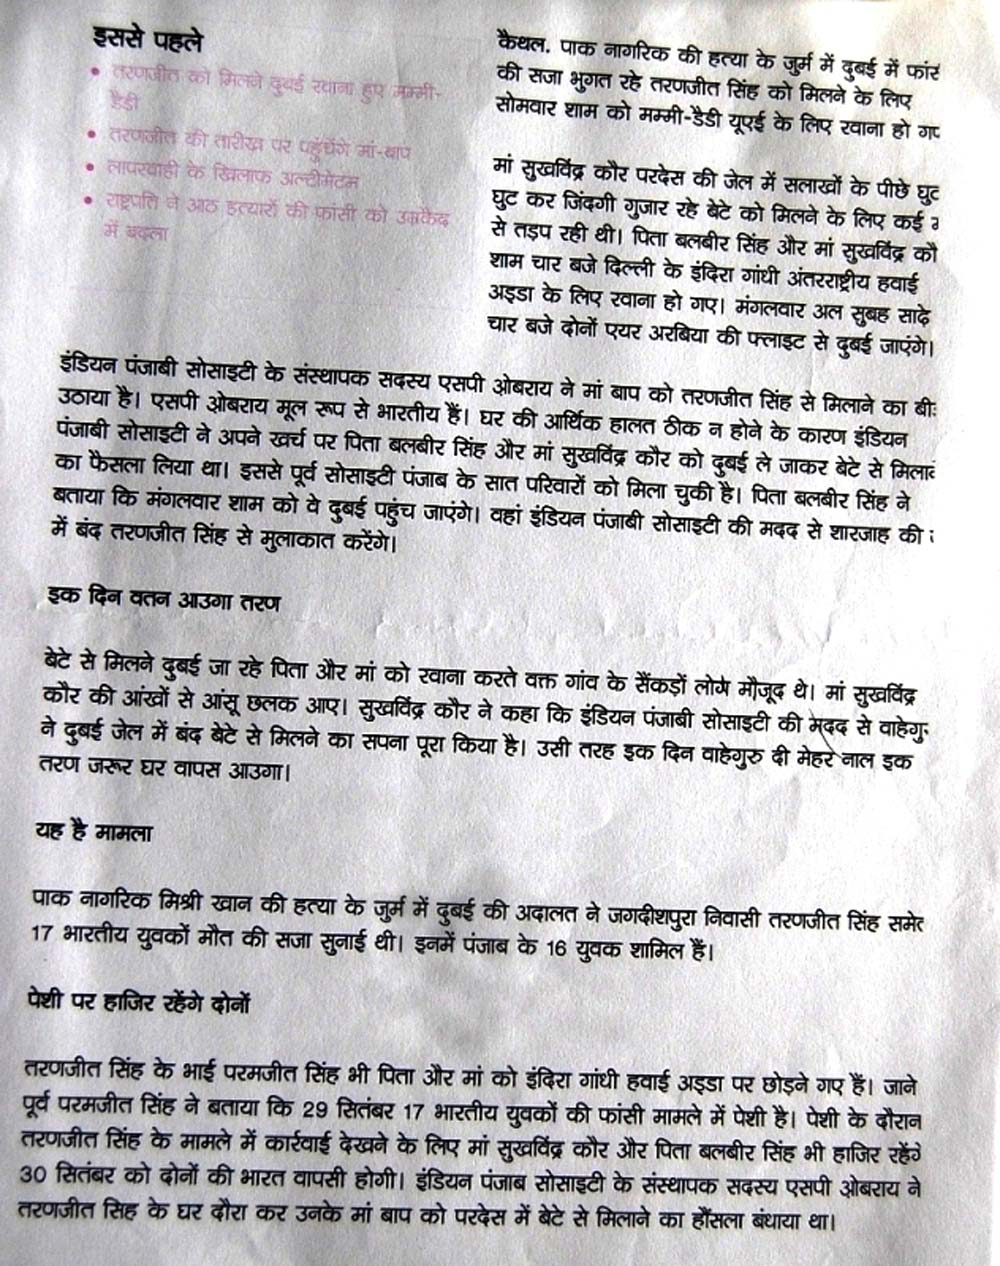 इससे पहले
• तरणजीत को मिलने दुबई रवाना हुए मम्मी-
डैडी
• तरणजीत की तारीख पर पहुंचेंगे मां-बाप
• लापरवाही के खिलाफ अल्टीमेटम
• राष्ट्रपति ने आठ हत्यारों की फांसी को उम्रकैद
में बदला
कैथल. पाक नागरिक की हत्या के जुर्म में दुबई में
की सजा भुगत रहे तरणजीत सिंह को मिलने के लिए
सोमवार शाम को मम्मी-डैडी यूएई के लिए रवाना हो
मां सुखविंद्र कौर परदेस की जेल में सलाखों के पीछे घुट
घुट कर जिंदगी गुजार रहे बेटे को मिलने के लिए कई
से तड़प रही थी। पिता बलबीर सिंह और मां सुखविंद्र
शाम चार बजे दिल्ली के इंदिरा गांधी अंतरराष्ट्रीय हवाई
अड्डा के लिए रवाना हो गए। मंगलवार अल सुबह साढ़े
चार बजे दोनों एयर अरबिया की फ्लाइट से दुबई जाएंगे।
इंडियन पंजाबी सोसाइटी के संस्थापक सदस्य एसपी ओबराय ने मां बाप को तरणजीत सिंह से मिलाने का
उठाया है। एसपी ओबराय मूल रूप से भारतीय हैं। घर की आर्थिक हालत ठीक न होने के कारण इंडियन
पंजाबी सोसाइटी ने अपने खर्च पर पिता बलबीर सिंह और मां सुखविंद्र कौर को दुबई ले जाकर बेटे से
का फैसला लिया था। इससे पूर्व सोसाइटी पंजाब के सात परिवारों को मिला चुकी है। पिता बलबीर सिंह ने
बताया कि मंगलवार शाम को वे दुबई पहुंच जाएंगे। वहां इंडियन पंजाबी सोसाइटी की मदद से शारजाह की
में बंद तरणजीत सिंह से मुलाकात करेंगे।
इक दिन वतन आउगा तरण
बेटे से मिलने दुबई जा रहे पिता और मां को रवाना करते वक्त गांव के सैंकड़ों लोग मौजूद थे। मां सुखविंद्र
कौर की आंखों से आंसू छलक आए। सुखविंद्र कौर ने कहा कि इंडियन पंजाबी सोसाइटी की मदद से
ने दुबई जेल में बंद बेटे से मिलने का सपना पूरा किया है। उसी तरह इक दिन वाहेगुरु दी मेहर नाल इक
तरण जरूर घर वापस आउगा।
यह है मामला
पाक नागरिक मिश्री खान की हत्या के जुर्म में दुबई की अदालत ने जगदीशपुरा निवासी तरणजीत सिंह समेत
17 भारतीय युवकों मौत की सजा सुनाई थी। इनमें पंजाब के 16 युवक शामिल हैं।
पेशी पर हाजिर रहेंगे दोनों
तरणजीत सिंह के भाई परमजीत सिंह भी पिता और मां को इंदिरा गांधी हवाई अड्डा पर छोड़ने गए हैं। जाने
पूर्व परमजीत सिंह ने बताया कि 29 सितंबर 17 भारतीय युवकों की फांसी मामले में पेशी है। पेशी के दौरान
तरणजीत सिंह के मामले में कार्रवाई देखने के लिए मां सुखविंद्र कौर और पिता बलबीर सिंह भी हाजिर रहेंगे
30 सितंबर को दोनों की भारत वापसी होगी। इंडियन पंजाब सोसाइटी के संस्थापक सदस्य एसपी ओबराय ने
तरणजीत सिह के घर दौरा कर उनके मां बाप को परदेस में बेटे से मिलाने का हौंसला बंधाया था।